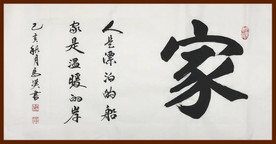 家
人是漂泊的船
家是温暖的岸
己亥秋月馬英書